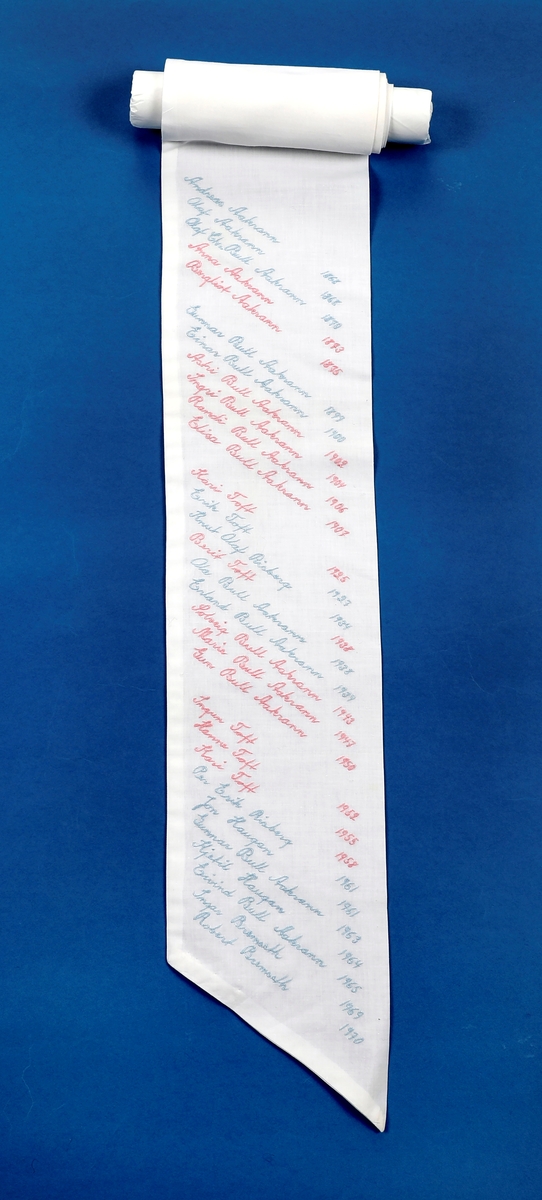 Andreas Aakrann
Olaf Aakrann 1868
Olaf Chr. Bull Aakrann 1870
Anna Aakrann 1873
Bergliot Aakrann
Gunnar Bull Aakrann 1899
Einar Bull Aakrann 1900
Bull Aakrann 1902
Ingri Bull Aakrann 1904
Randi Bull Aakrann 1906
Elisa Bull Aakrann 1907
Kari Toft 1925
Erik Toft 1927
Knut Olaf Risberg 1934
Berit Toft 1938
Ola Bull Aakrann 1938
Erland Bull Aakrann 1939
Solveig Bull Aakrann 1943
Marie Bull Aakrann 1947
Gun Bull Aakrann 1950
Ingun Toft 1952
Hanne Toft 1955
Kari Toft 1958
Per Erik Risberg 1961
Jon Haugan 1961
Gunnar Bull Aakrann 1963
Kjetil Haugan 1964
Eivind Bull Aakrann 1965
Inge Bremseth 1969
Robert Bremseth 1970